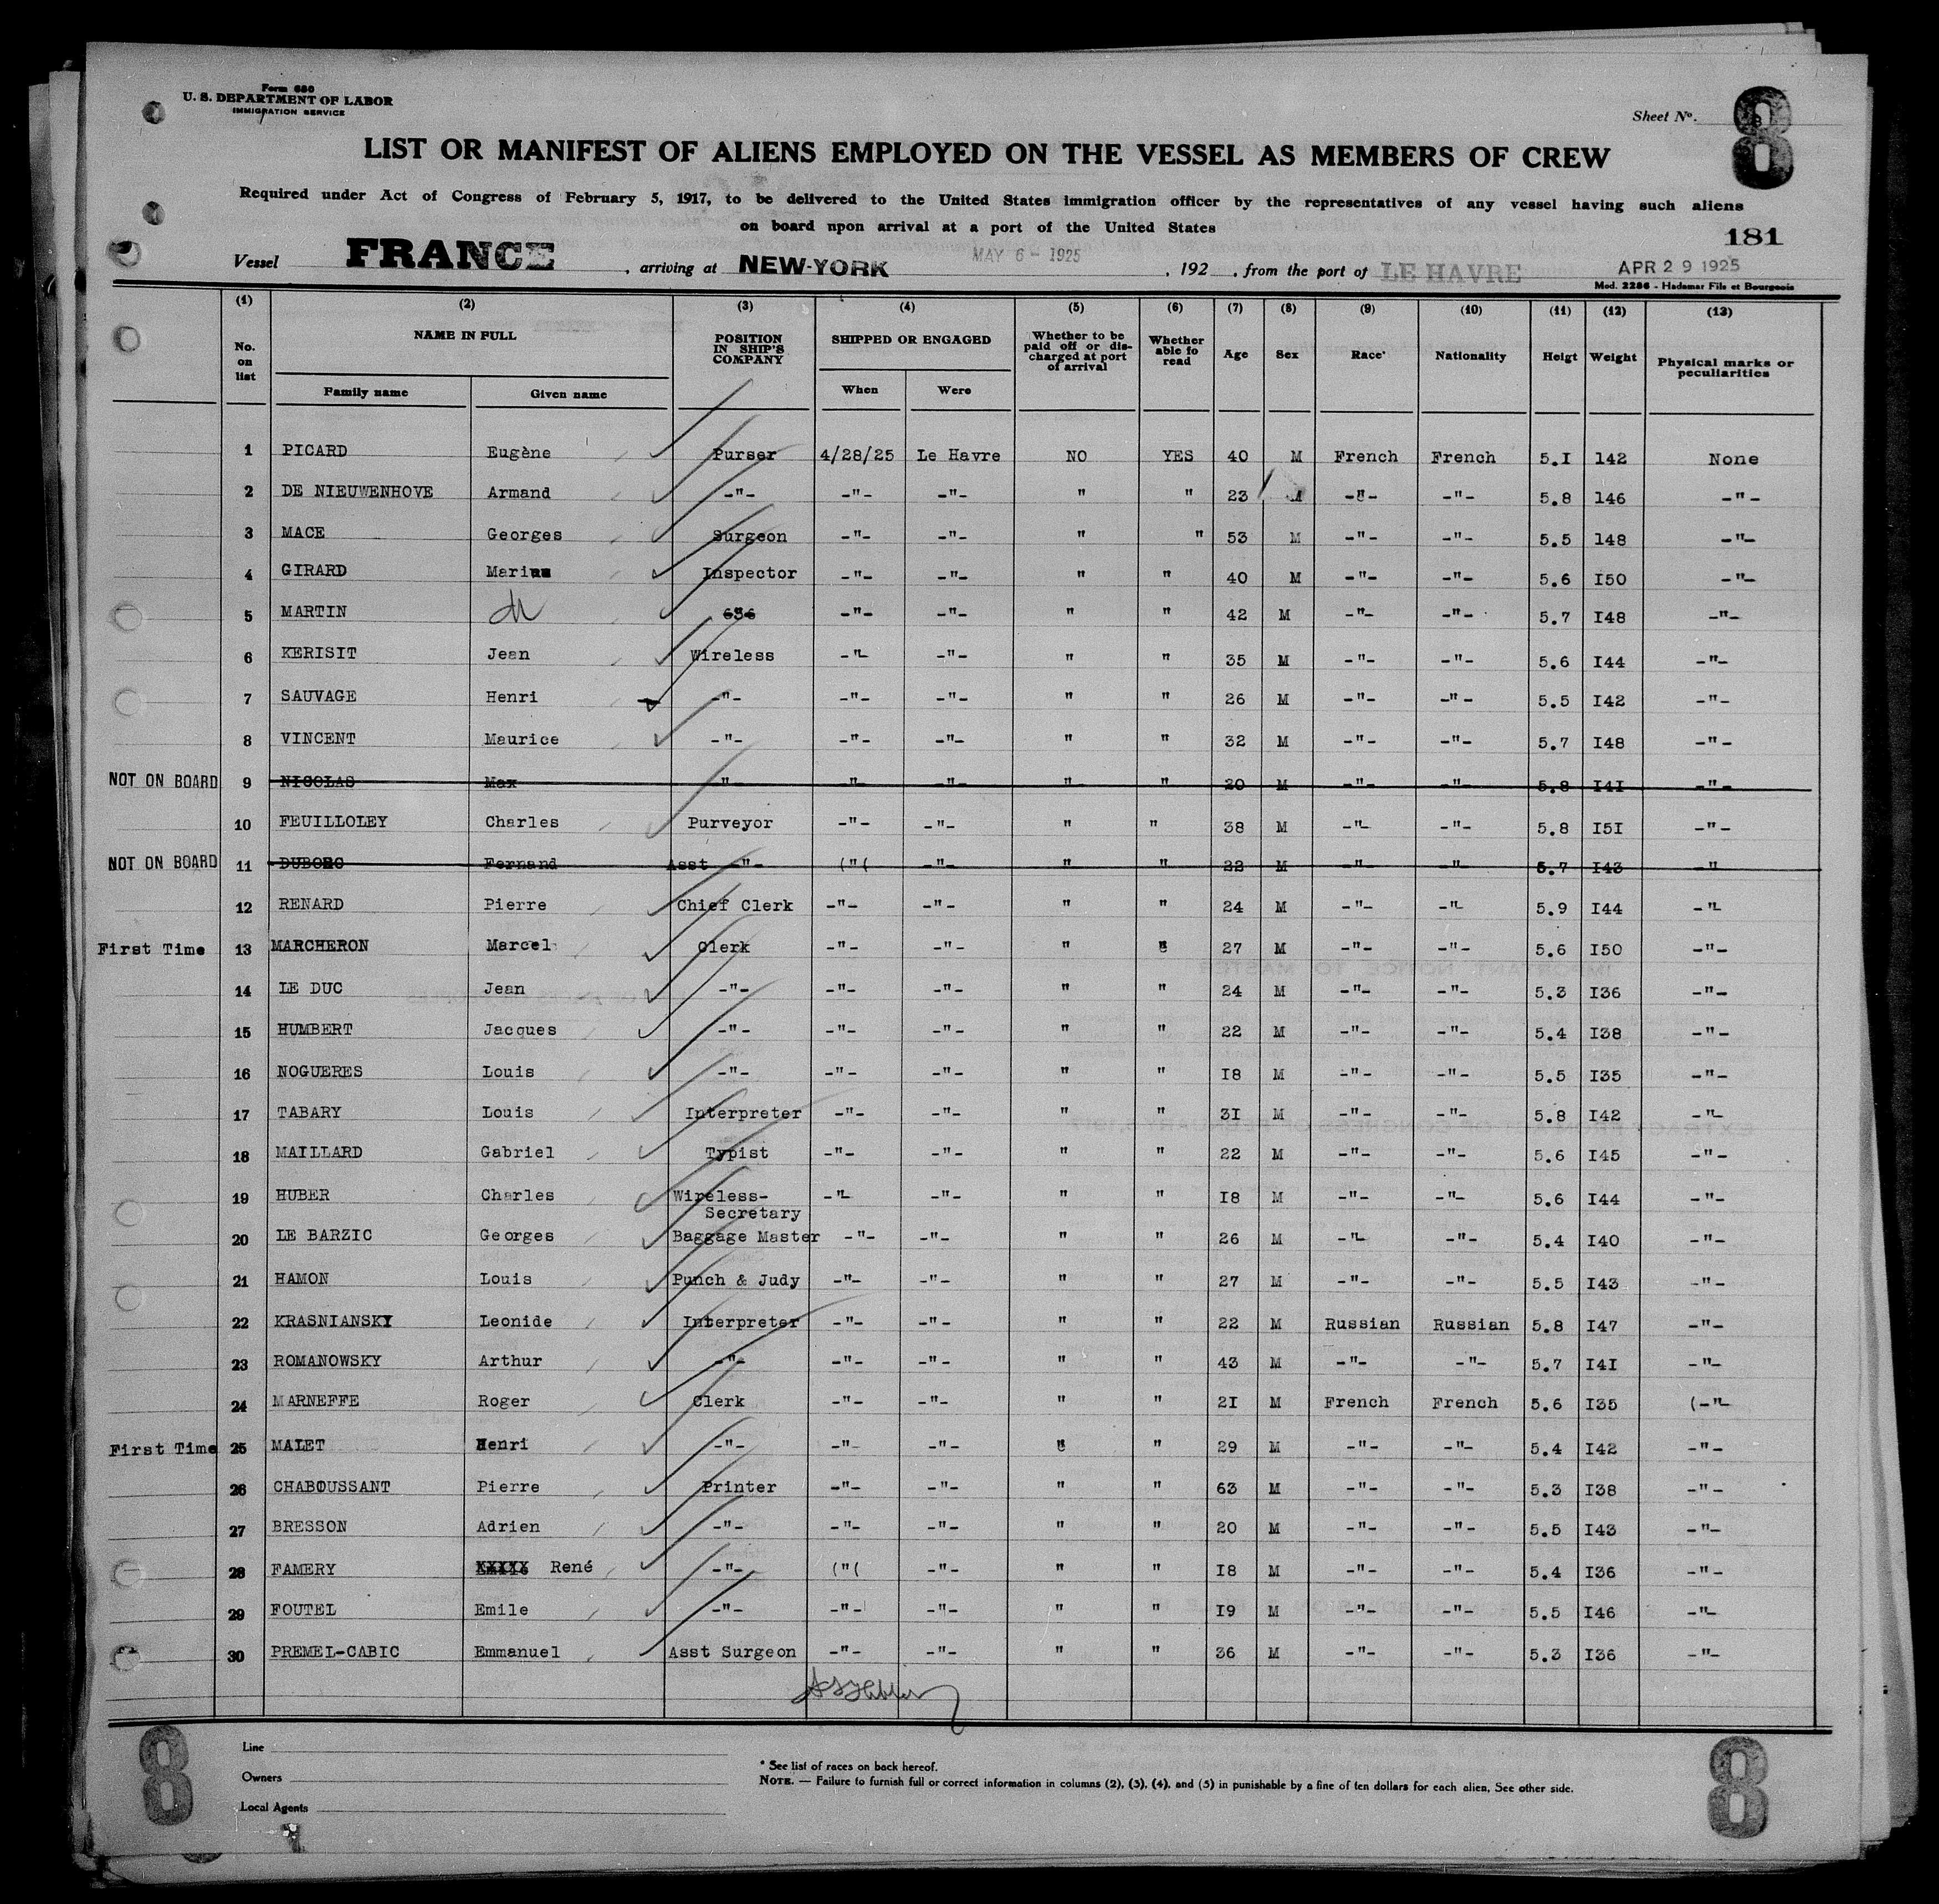 Form 680
U. S. DEPARTMENT OF LABOR
IMMIGRATION SERVICE
Sheet No. 8
LIST OR MANIFEST OF ALIENS EMPLOYED ON THE VESSEL AS MEMBERS OF CREW
Required under Act of Congress of February 5, 1917, to be delivered to the United States immigration officer by the representatives of any vessel having such aliens
on board upon arrival at a port of the United States
181
Vessel FRANCE , arriving at NEW-YORK MAY 6 - 1925 , 192 , from the port of LE HAVRE APR 29 1925
Mod. 2286 - Hadamar Fils et Bourgeois
(1) (2) (3) (4) (5) (6) (7) (8) (9) (10) (11) (12) (13)
No. on list NAME IN FULL POSITION IN SHIP'S COMPANY SHIPPED OR ENGAGED Whether to be paid off or discharged at port of arrival Whether able to read Age Sex Race* Nationality Heigt Weight Physical marks or peculiarities
Family name Given name When Were
1 PICARD Eugène Purser 4/28/25 Le Havre NO YES 40 M French French 5.I 142 None
2 DE NIEUWENHOVE Armand -"- -"- -"- " " 23 M -"- -"- 5.8 146 -"-
3 MACE Georges Surgeon -"- -"- " " 53 M -"- -"- 5.5 148 -"-
4 GIRARD Marius Inspector -"- -"- " " 40 M -"- -"- 5.6 I50 -"-
5 MARTIN -"- -"- -"- " " 42 M -"- -"- 5.7 I48 -"-
6 KERISIT Jean Wireless -"- -"- " " 35 M -"- -"- 5.6 I44 -"-
7 SAUVAGE Henri -"- -"- -"- " " 26 M -"- -"- 5.5 I42 -"-
8 VINCENT Maurice -"- -"- -"- " " 32 M -"- -"- 5.7 I48 -"-
NOT ON BOARD 9 NICOLAS Max -"- -"- -"- " " 20 M -"- -"- 5.8 I4I -"-
10 FEUILLOLEY Charles Purveyor -"- -"- " " 38 M -"- -"- 5.8 I5I -"-
NOT ON BOARD 11 DUBORG Fernand Asst -"- ("( -"- " " 22 M -"- -"- 5.7 I43 -"
12 RENARD Pierre Chief Clerk -"- -"- " " 24 M -"- -"- 5.9 I44 -"-
First Time 13 MARCHERON Marcel Clerk -"- -"- " " 27 M -"- -"- 5.6 I50 -"-
14 LE DUC Jean -"- -"- -"- " " 24 M -"- -"- 5.3 I36 -"-
15 HUMBERT Jacques -"- -"- -"- " " 22 M -"- -"- 5.4 I38 -"-
16 NOGUERES Louis -"- -"- -"- " " I8 M -"- -"- 5.5 I35 -"-
17 TABARY Louis Interpreter -"- -"- " " 3I M -"- -"- 5.8 I42 -"-
18 MAILLARD Gabriel Typist -"- -"- " " 22 M -"- -"- 5.6 I45 -"-
19 HUBER Charles Wireless- -"- -"- " " I8 M -"- -"- 5.6 I44 -"-
Secretary
20 LE BARZIC Georges Baggage Master -"- -"- " " 26 M -"- -"- 5.4 I40 -"-
21 HAMON Louis Punch & Judy -"- -"- " " 27 M -"- -"- 5.5 I43 -"-
22 KRASNIANSKY Leonide Interpreter -"- -"- " " 22 M Russian Russian 5.8 I47 -"-
23 ROMANOWSKY Arthur -"- -"- -"- " " 43 M -"- -"- 5.7 I4I -"-
24 MARNEFFE Roger Clerk -"- -"- " " 2I M French French 5.6 I35 (-"-
First Time 25 MALET Henri -"- -"- -"- " " 29 M -"- -"- 5.4 I42 -"-
26 CHABOUSSANT Pierre Printer -"- -"- " " 63 M -"- -"- 5.3 I38 -"-
27 BRESSON Adrien -"- -"- -"- " " 20 M -"- -"- 5.5 I43 -"-
28 FAMERY XXXXX René -"- ("( -"- " " I8 M -"- -"- 5.4 I36 -"-
29 FOUTEL Emile -"- -"- -"- " " I9 M -"- -"- 5.5 I46 -"-
30 PREMEL-CABIC Emmanuel Asst Surgeon -"- -"- " " 36 M -"- -"- 5.3 I36 -"-
Line
Owners
Local Agents
* See list of races on back hereof.
NOTE. — Failure to furnish full or correct information in columns (2), (3), (4), and (5) in punishable by a fine of ten dollars for each alien, See other side.
8
8
8